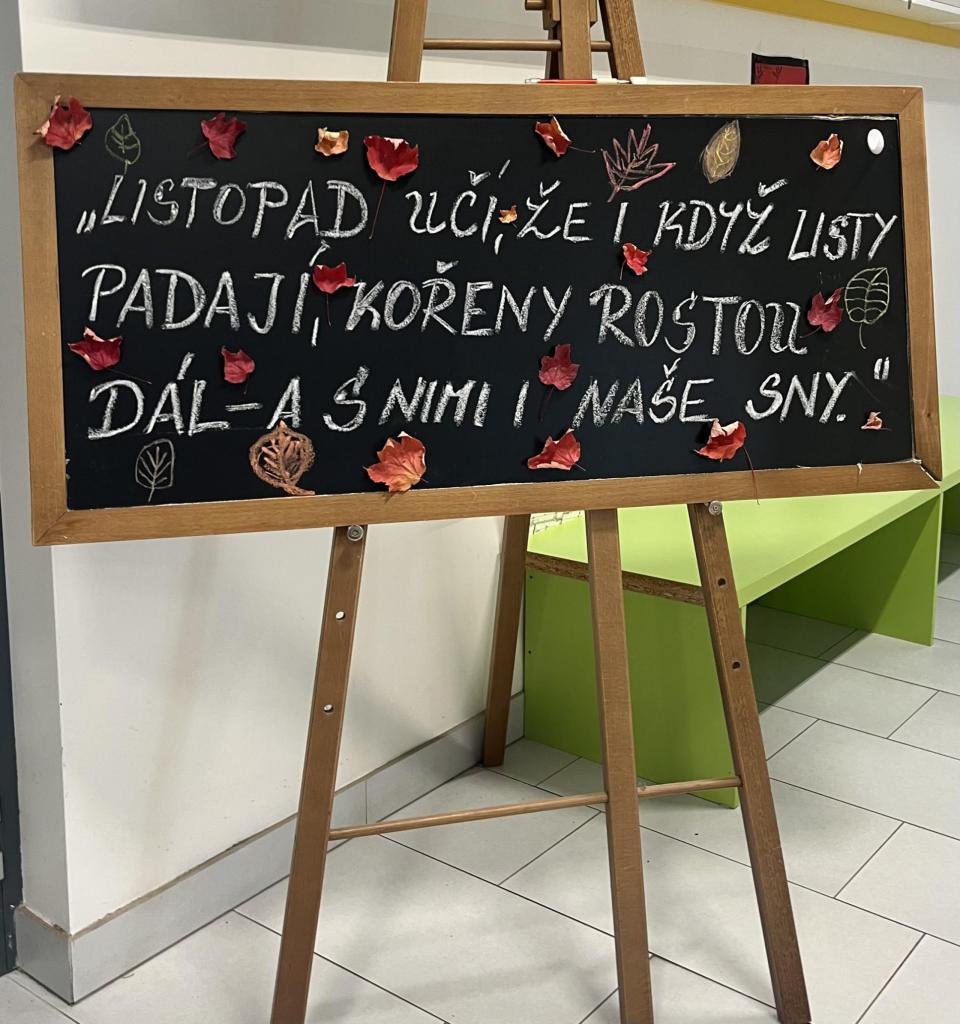 „LISTOPAD UČÍ, ŽE I KDYŽ LISTY
PADAJÍ, KOŘENY ROSTOU
DÁL-A S NIMI I NAŠE SNY."